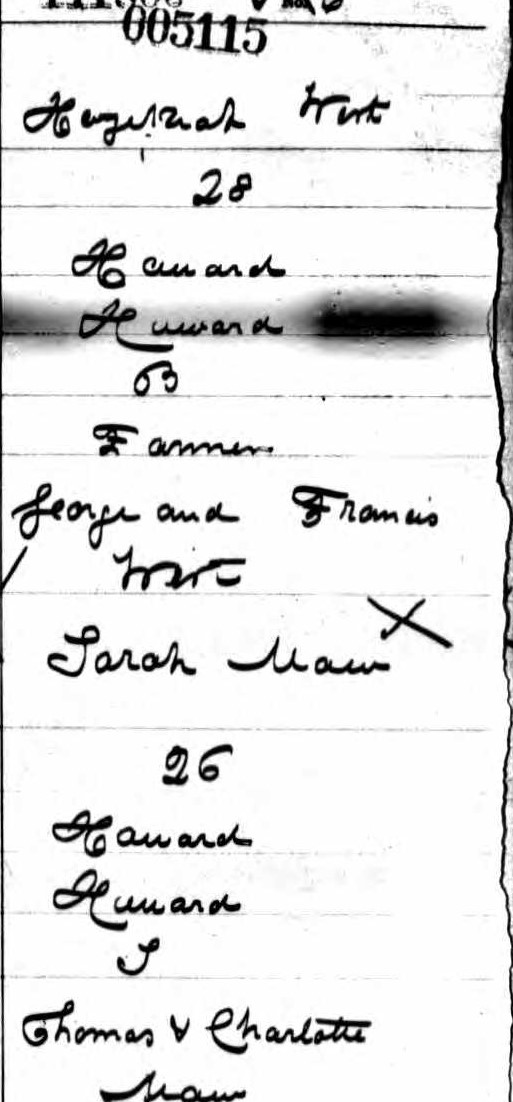 005115
West
28
Howard
Howard
B
Farmer
George and Francis
West
Sarah Maw
26
Howard
Howard
S
Thomas & Charlotte
Maw